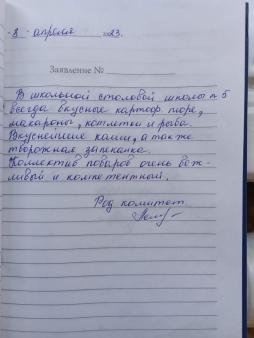 8 апреля 2023.
Заявление №
В школьной столовой школы №5
всегда вкусные картоф. пюре,
макароны, котлеты и рыба.
Вкуснейшие каши, а также
творожная запеканка.
Коллектив поваров очень веж-
ливый и компетентный.
Род комитет